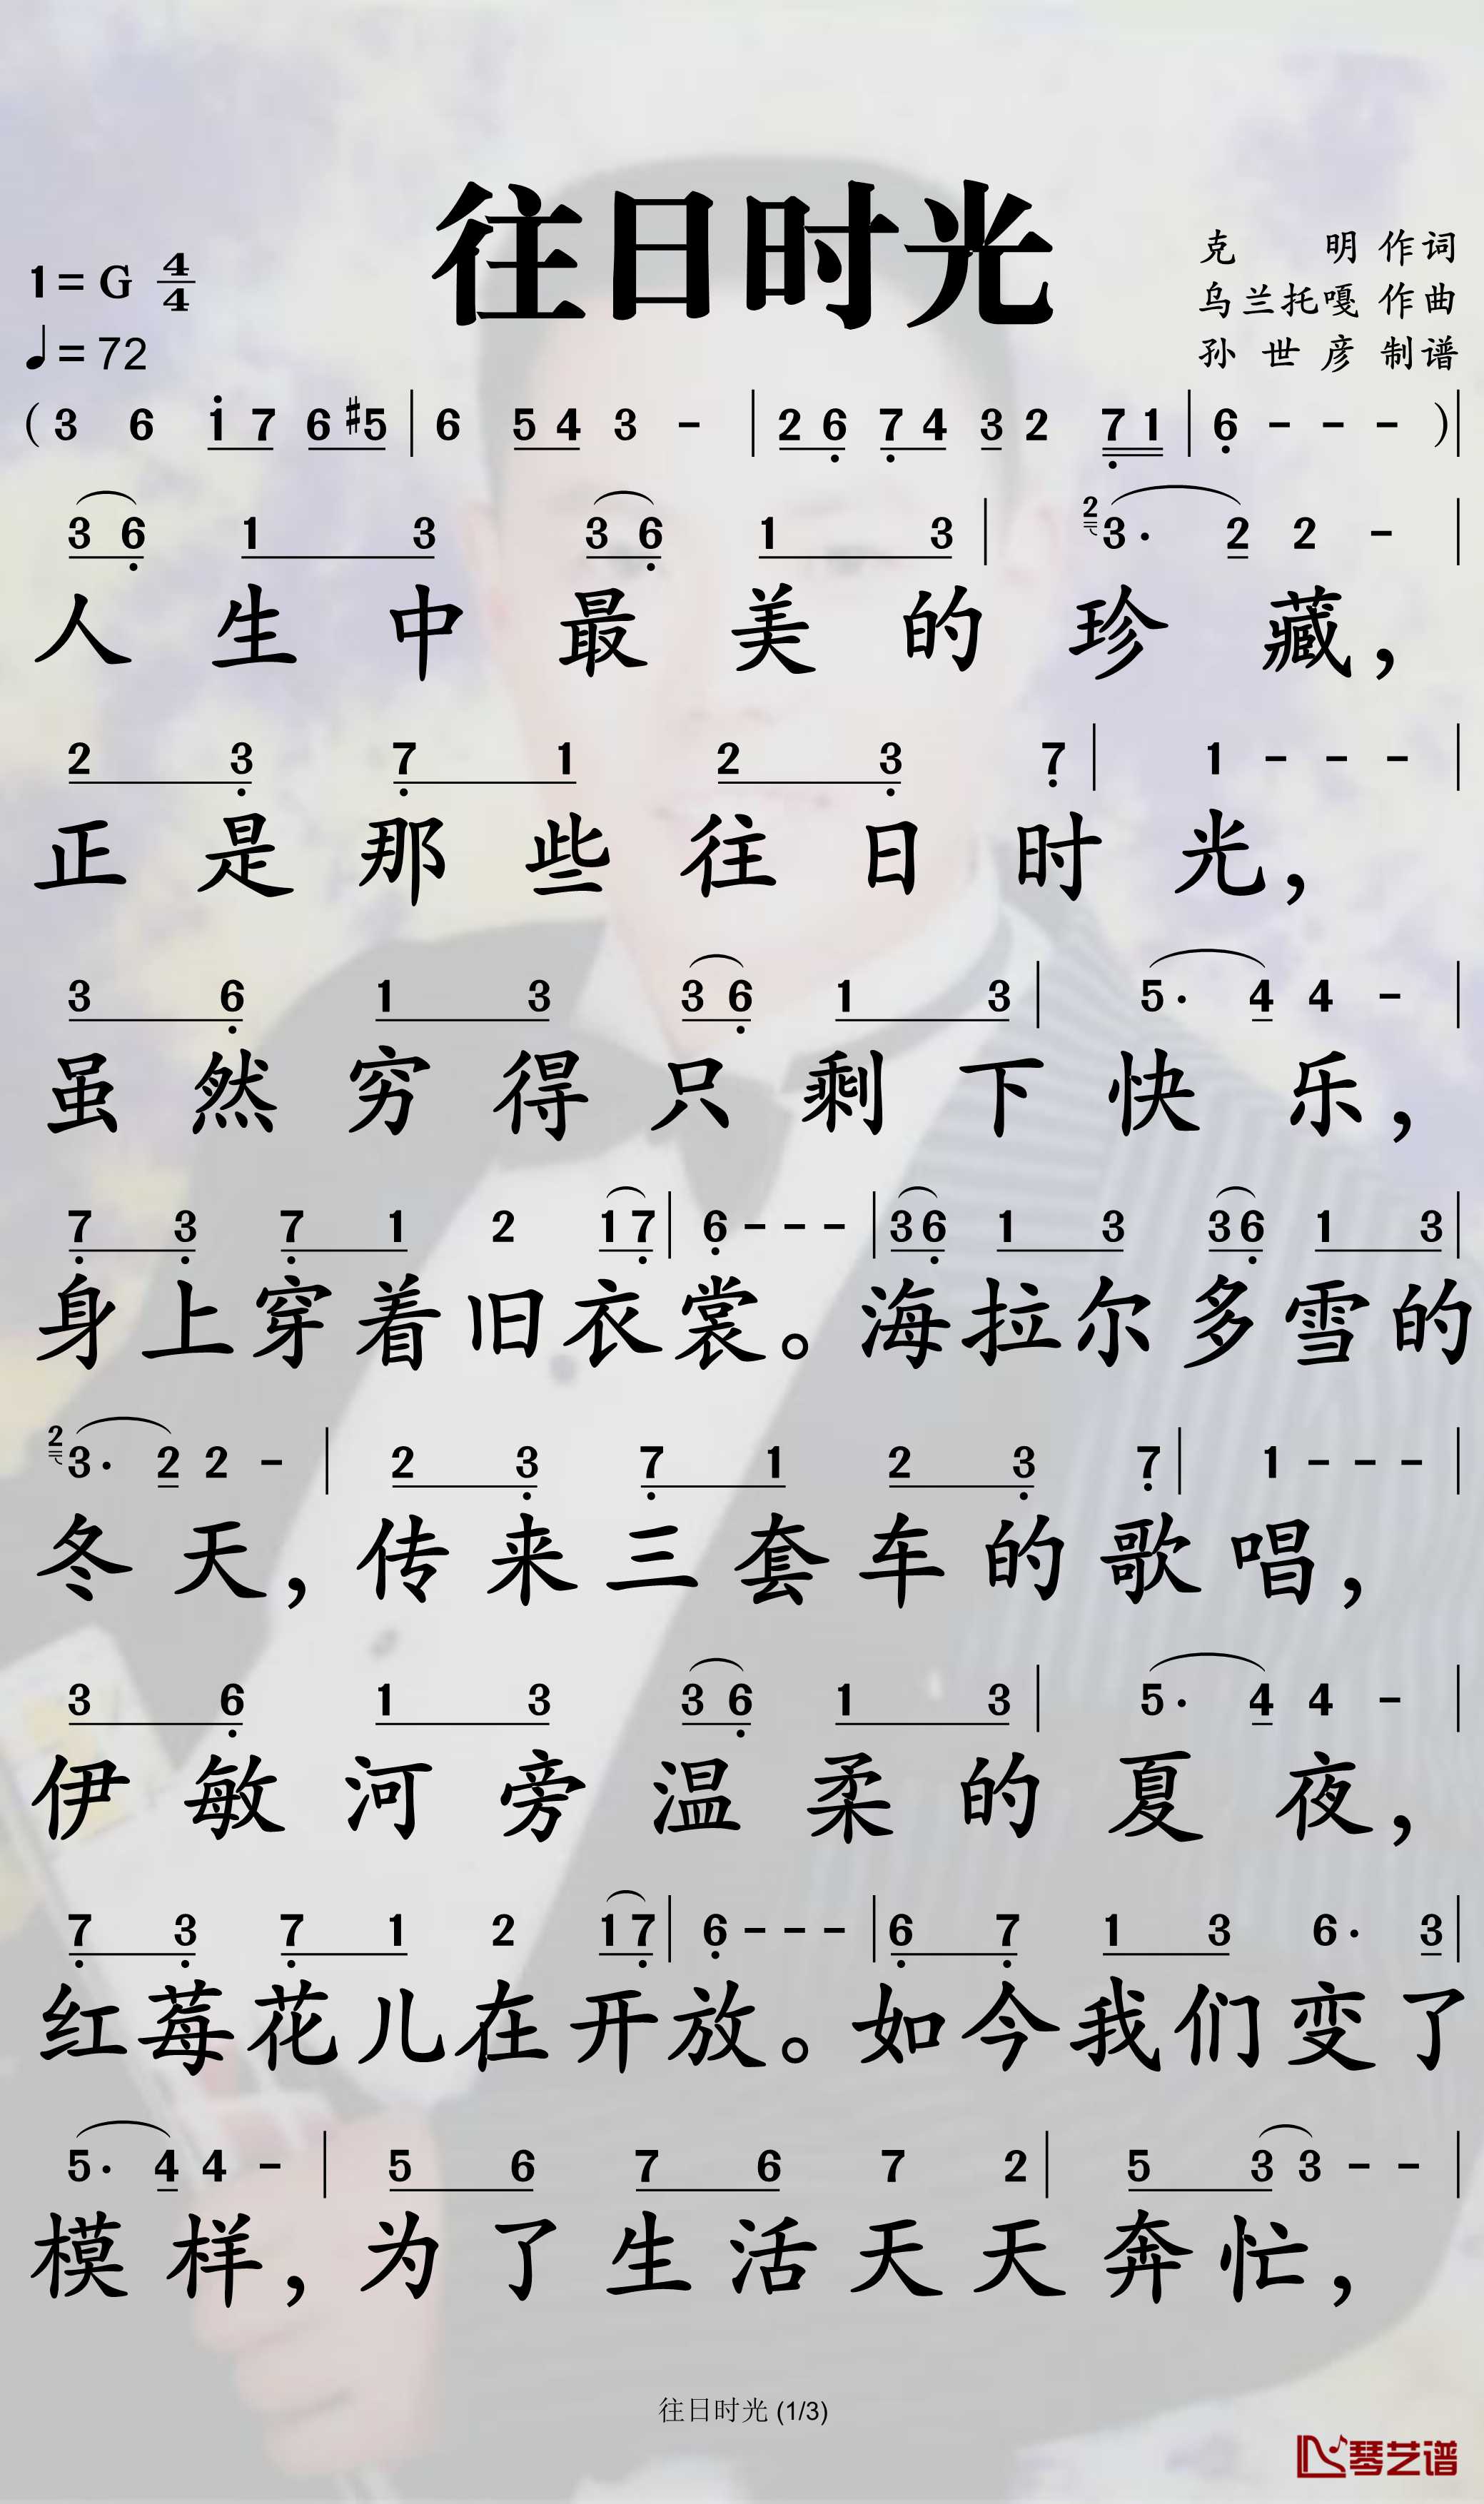 往日时光
1= G 4/4
♩= 72
克 明 作词
乌兰托嘎 作曲
孙世彦 制谱
( 3 6 1 7 6 #5 | 6 5 4 3 - | 2 6 7 4 3 2 7 1 | 6 - - - ) |
3 6 1 3 3 6 1 3 | 2 3· 2 2 - |
人生中最美的珍藏，
2 3 7 1 2 3 7 | 1 - - - |
正是那些往日时光，
3 6 1 3 3 6 1 3 | 5· 4 4 - |
虽然穷得只剩下快乐，
7 3 7 1 2 1 7 | 6 - - - | 3 6 1 3 3 6 1 3 |
身上穿着旧衣裳。海拉尔多雪的
2 3· 2 2 - | 2 3 7 1 2 3 7 | 1 - - - |
冬天，传来三套车的歌唱，
3 6 1 3 3 6 1 3 | 5· 4 4 - |
伊敏河旁温柔的夏夜，
7 3 7 1 2 1 7 | 6 - - - | 6 7 1 3 6· 3 |
红莓花儿在开放。如今我们变了
5· 4 4 - | 5 6 7 6 7 2 | 5 3 3 - - |
模样，为了生活天天奔忙，
往日时光 (1/3)
琴艺谱